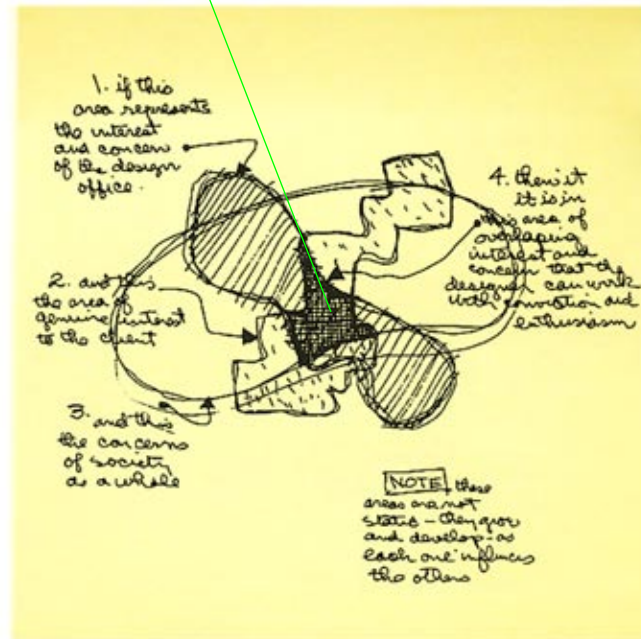 1. if this
area represents
the interest
and concern
of the design
office.
2. and this
the area of
genuine interest
to the client
3. and this
the concerns
of society
as a whole
4. then it
it is in
this area of
overlaping
interest and
concern that the
designer can work
with conviction and
enthusiasm
NOTE these
areas are not
static - they grow
and develop - as
each one influences
the others